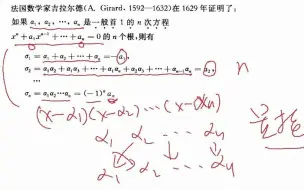 法国数学家吉拉尔德(A. Girard, 1592—1632)在 1629 年证明了:
如果 α₁, α₂, ⋯, αₙ 是一般首 1 的 n 次方程
xⁿ + a₁xⁿ⁻¹ + ⋯ + aₙ = 0 的 n 个根,则有
σ₁ = α₁ + α₂ + ⋯ + αₙ = −a₁,
σ₂ = α₁α₂ + α₁α₃ + ⋯ + α₂α₃ + ⋯ + αₙ₋₁αₙ = a₂,
⋯
σₙ = α₁α₂⋯αₙ = (−1)ⁿaₙ
n
(x−α₁)(x−α₂)⋯(x−αₙ)
α₁ α₂ ⋯ αₙ
α₁ α₂ ⋯ αₙ